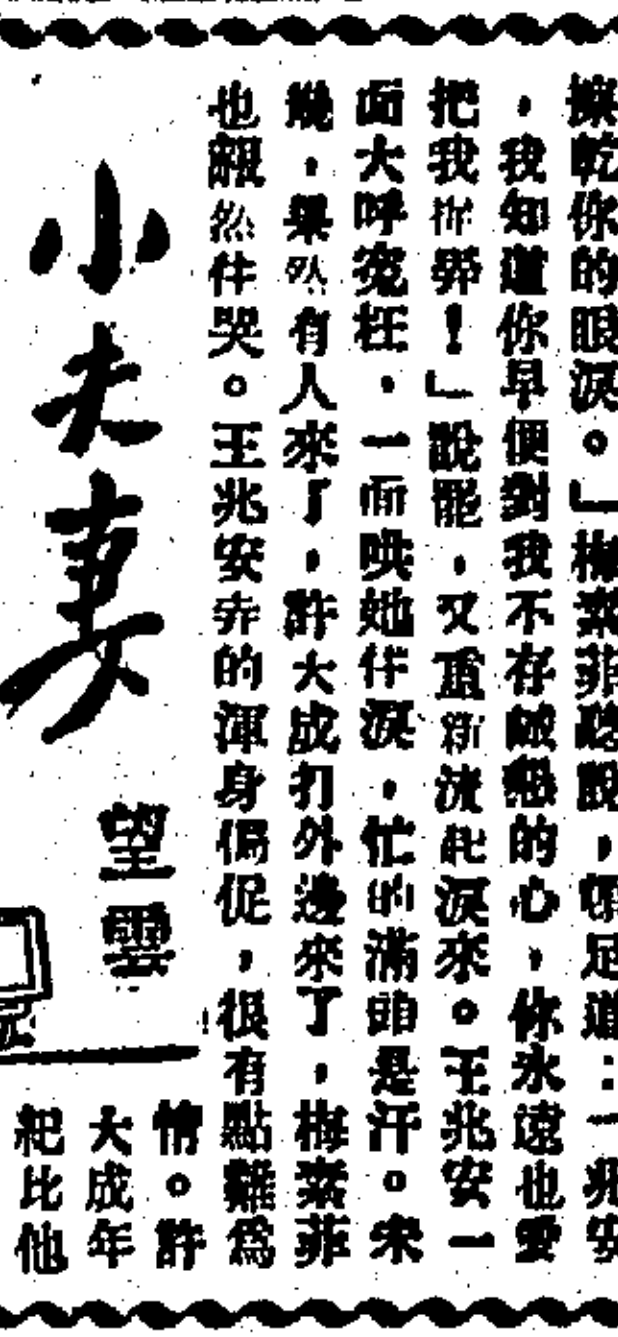 擦乾你的眼淚。」梅素菲聽說，頓足道：「兆安
，我知道你早便對我不存誠懇的心，你永遠也要
把我捉弄！」說罷，又重新流起淚來。王兆安一
面大呼寃枉，一面哄她佯淚，忙的滿頭是汗。未
幾，果然有人來了，許大成打外邊來了，梅素菲
也靦然佯哭。王兆安弄的渾身侷促，很有點難為
情。許
大成年
紀比他
小夫妻
望雲